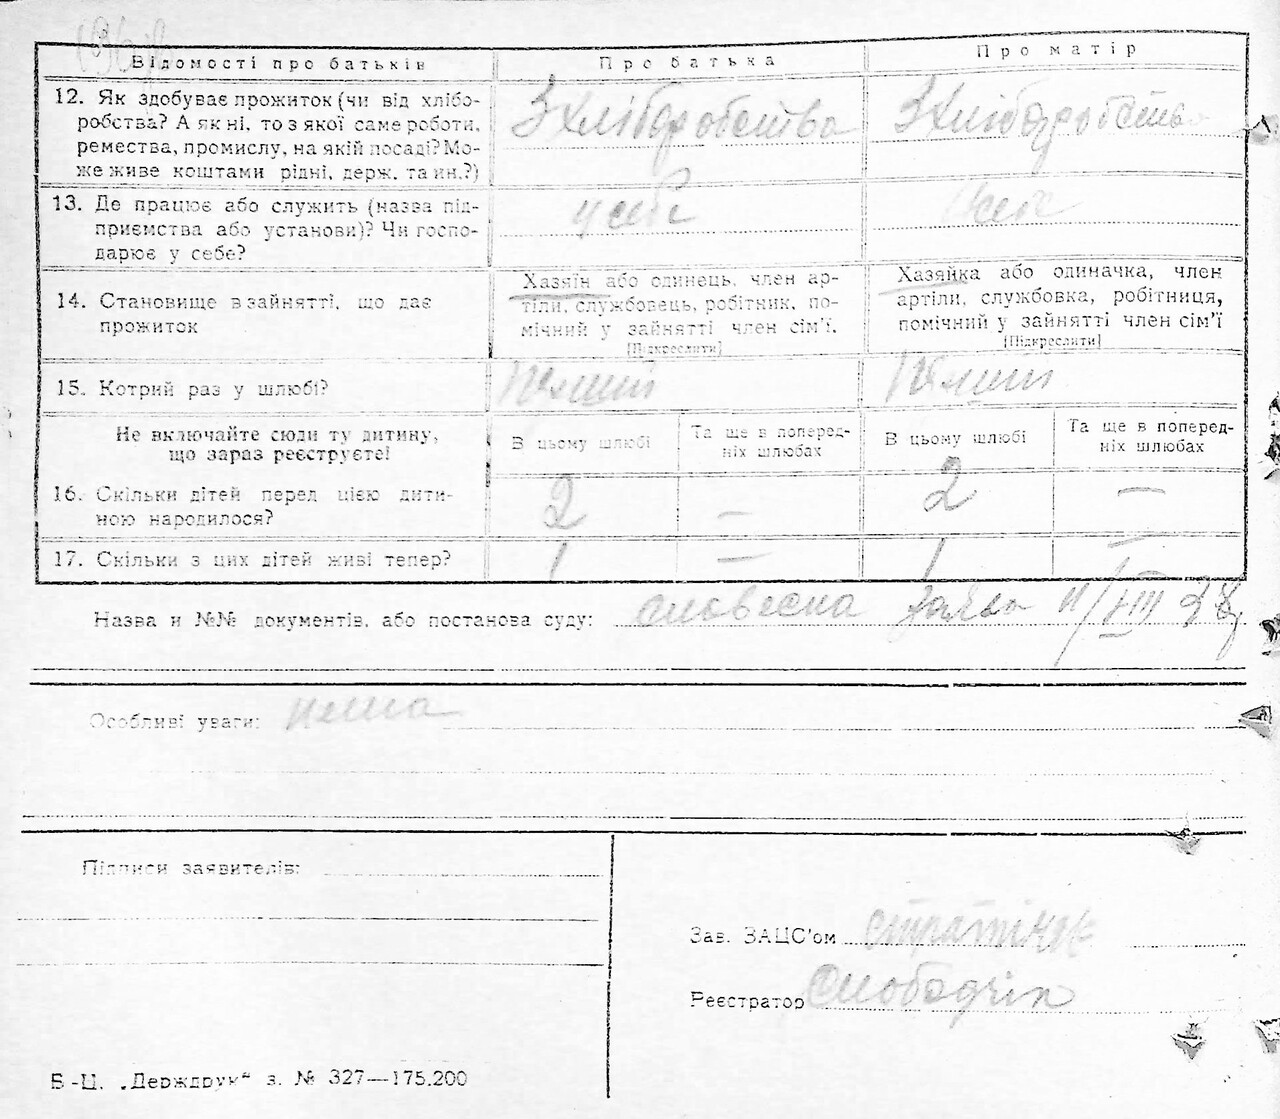 Відомості про батьків
Про батька
Про матір
12. Як здобуває прожиток (чи від хлібо-
робства? А як ні, то з якої саме роботи,
ремества, промислу, на якій посаді? Мо-
же живе коштами рідні, держ. та ин.?)
З хліборобства
З хліборобства
13. Де працює або служить (назва під-
приємства або установи)? Чи госпо-
дарює у себе?
у себе
у себе
14. Становище в зайнятті, що дає
прожиток
Хазяїн або одинець, член ар-
тіли, службовець, робітник, по-
мічний у зайнятті член сім'ї.
[Підкреслити]
Хазяйка або одиначка, член
артіли, службовка, робітниця,
помічний у зайнятті член сім'ї
[Підкреслити]
15. Котрий раз у шлюбі?
Не включайте сюди ту дитину,
що зараз реєструєте!
В цьому шлюбі
Та ще в поперед-
ніх шлюбах
В цьому шлюбі
Та ще в поперед-
ніх шлюбах
16. Скільки дітей перед цією дити-
ною народилося?
2
—
2
—
17. Скільки з цих дітей живі тепер?
1
—
1
—
Назва и №№ документів, або постанова суду: словесна заява 11/VIII 28
Особливі уваги: нема
Підписи заявителів:
Зав. ЗАЦС'ом
Реєстратор Слободчік
Б-Ц. „Держдрук“ з. № 327—175.200